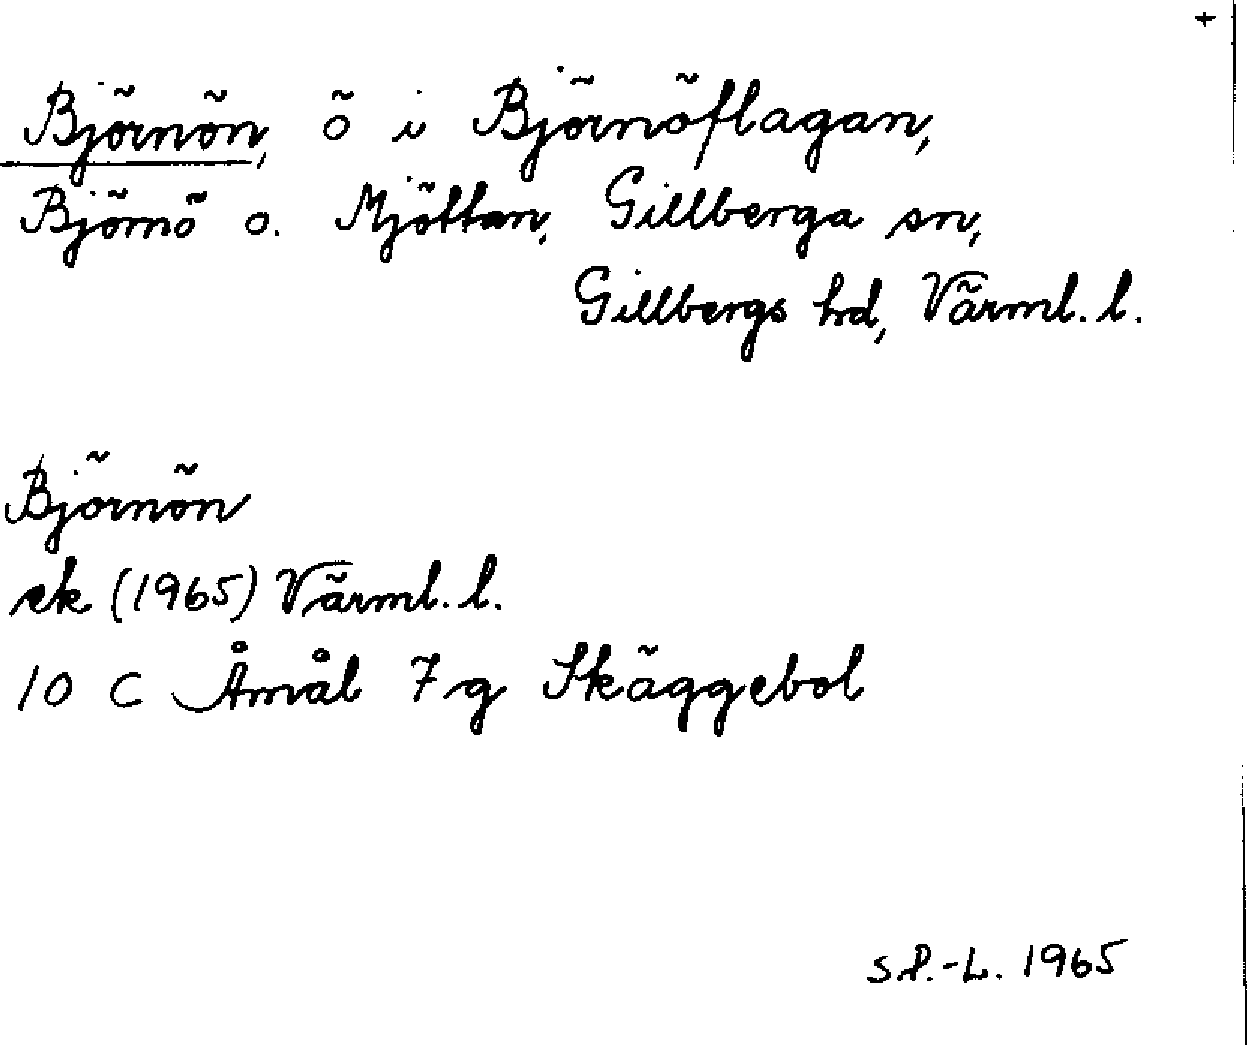 +
Björnön, ö i Björnöflagan,
Björnö o. Mjöttan, Gillberga sn,
Gillbergs hd, Värml. l.
Björnön
ek (1965) Värml. l.
10 C Åmål 7 g Skäggebol
S.P.-L. 1965